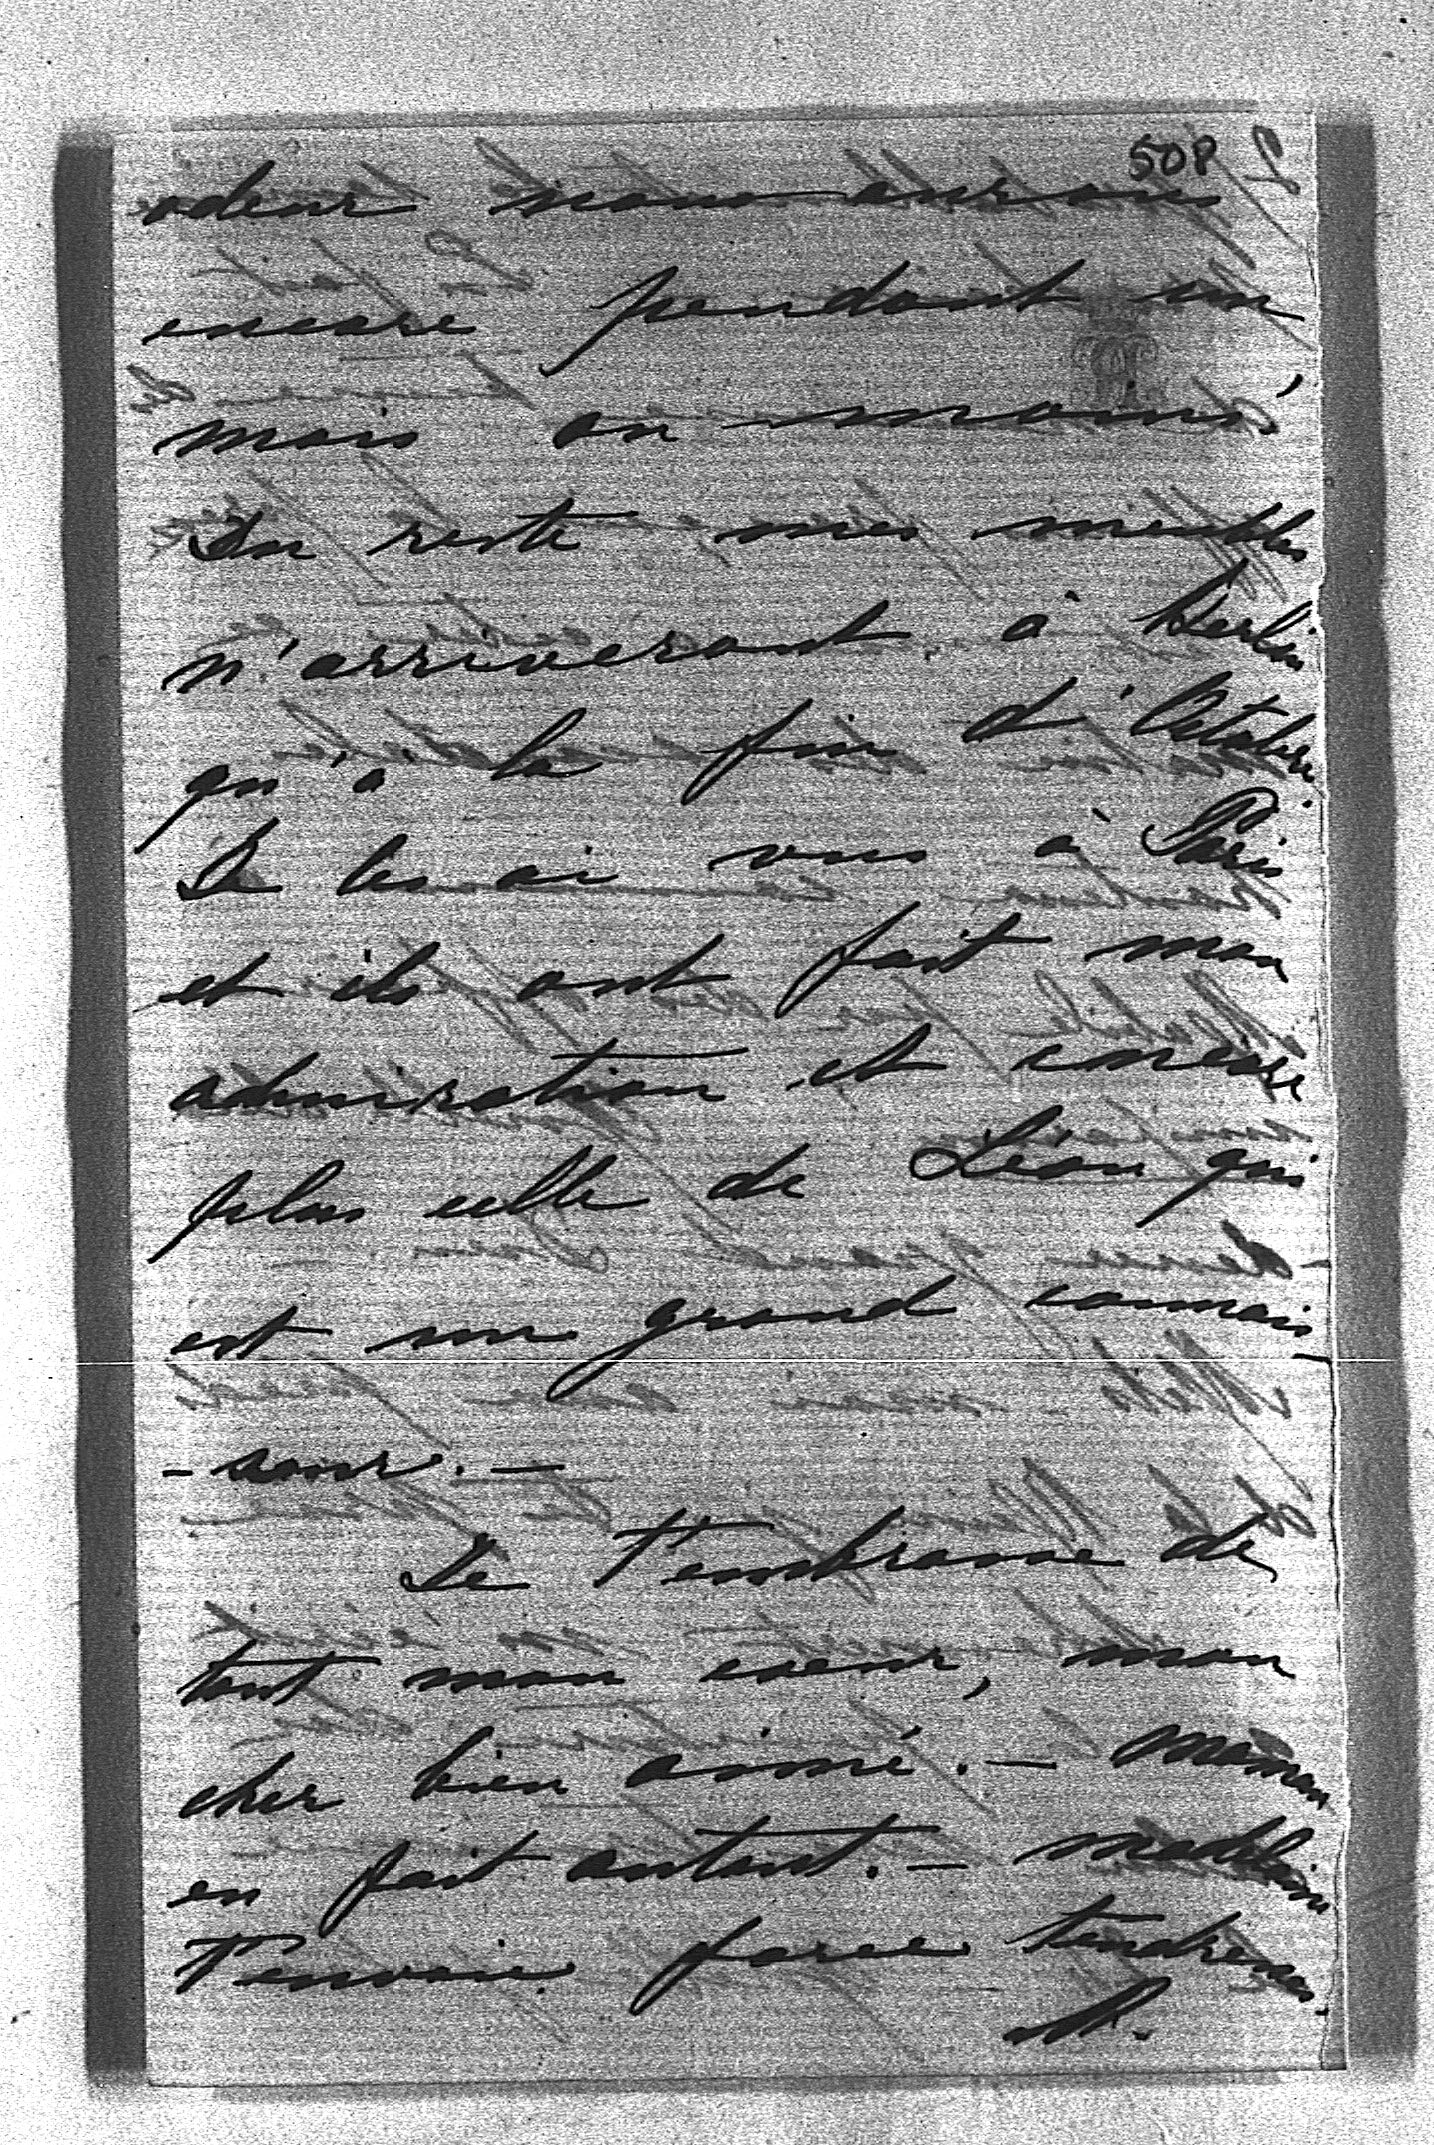 508
odeur nous aurons
encore pendant un
mois au moins.
Du reste mes meubles
n'arriveront à Berlin
qu'à la fin d'Octobre.
Je les ai vus à Paris
et ils ont fait mon
admiration et encore
plus celle de Léon qui
est un grand connais
- seur. —
Je t'embrasse de
tout mon coeur, mon
cher bien aimé. — Maman
en fait autant. — Madeleine
T'envoie force tendresses.
M.